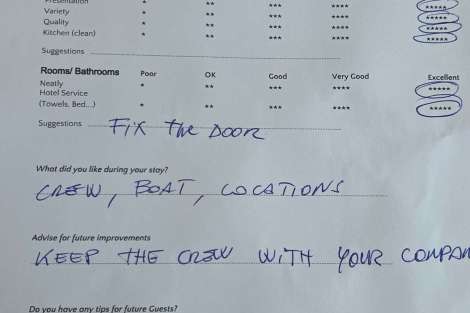 Presentation * ** *** **** *****
Variety * ** *** **** *****
Quality * ** *** **** *****
Kitchen (clean) * ** *** **** *****
Suggestions
Rooms/ Bathrooms Poor OK Good Very Good Excellent
Neatly * ** *** **** *****
Hotel Service
(Towels, Bed...) * ** *** **** *****
Suggestions FIX THE DOOR
What did you like during your stay?
CREW, BOAT, LOCATIONS
Advise for future improvements
KEEP THE CREW WITH YOUR COMPAN
Do you have any tips for future Guests?